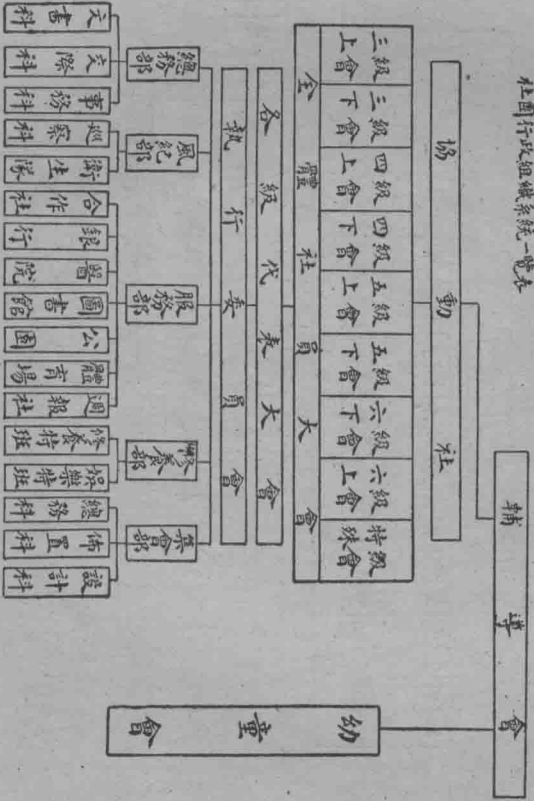 社團行政組織系統一覽表
輔導會
協動社
幼童會
三級上會
三級下會
四級上會
四級下會
五級上會
五級下會
六級下會
六級上會
特級殊會
全體社員大會
各級代表大會
執行委員會
總務部
風紀部
服務部
修養部
集會部
文書科
交際科
事務科
巡察科
衛生隊
合作社
銀行
醫院
圖書館
公園
體育場
週報社
修養特班
娛樂特班
總務科
佈置科
設計科